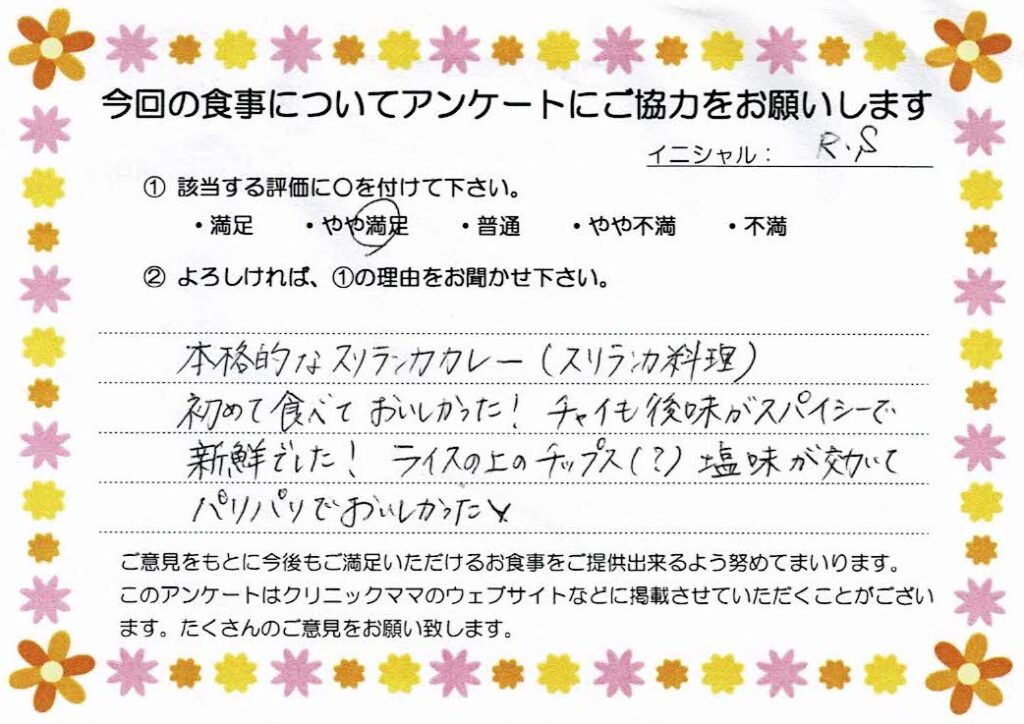 今回の食事についてアンケートにご協力をお願いします
イニシャル： R.S
① 該当する評価に〇を付けて下さい。
・満足 ・やや満足 ・普通 ・やや不満 ・不満
② よろしければ、①の理由をお聞かせ下さい。
本格的なスリランカカレー（スリランカ料理）
初めて食べておいしかった！ チャイも後味がスパイシーで
新鮮でした！ ライスの上のチップス（？）塩味が効いて
パリパリでおいしかった
ご意見をもとに今後もご満足いただけるお食事をご提供出来るよう努めてまいります。
このアンケートはクリニックママのウェブサイトなどに掲載させていただくことがござい
ます。たくさんのご意見をお願い致します。